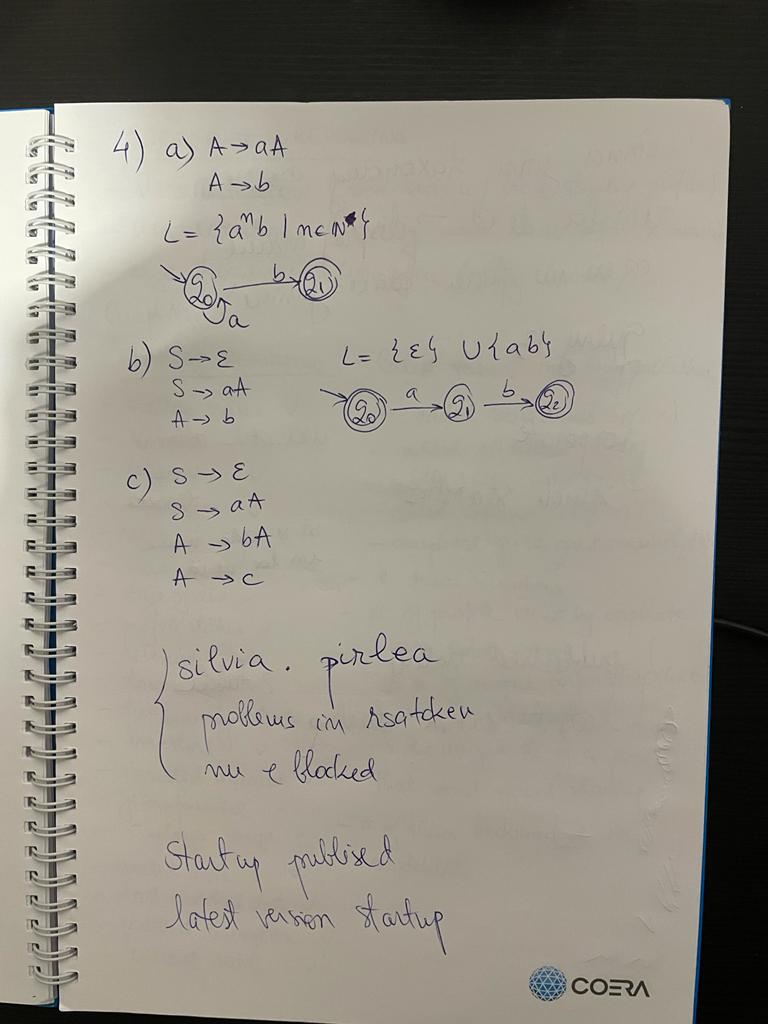 4) a) A → aA
A → b
L = {aⁿb | n ∈ N*}
q0 b q1
a
b) S → ε L = {ε} ∪ {ab}
S → aA
A → b
q0 a q1 b q2
c) S → ε
S → aA
A → bA
A → c
silvia. pirlea
problems in rsatoken
nu e blocked
Startup publised
latest version startup
COERA